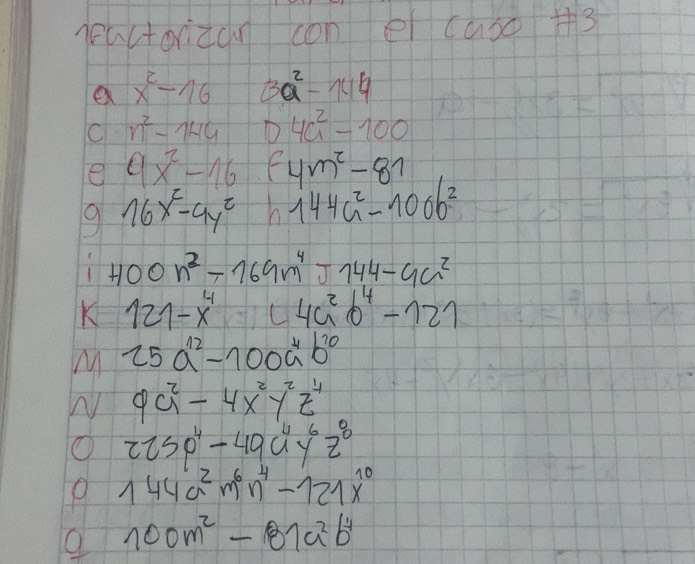 reactorizar con el caso #3
a x²-16 Ba²-144
c n²-144 D 4a²-100
e 9x²-16 F 4m²-81
g 16x²-9y² h 144a²-100b²
i 400n²-169m⁴ J 144-9a²
K 121-x⁴ L 4a²b⁴-121
M 25a¹²-100a⁴b¹⁰
N 9a²-4x²y²z⁴
O 225p⁴-49a⁴y⁶z⁸
p 144a²m⁶n⁴-121x¹⁰
q 100m²-81a²b⁴